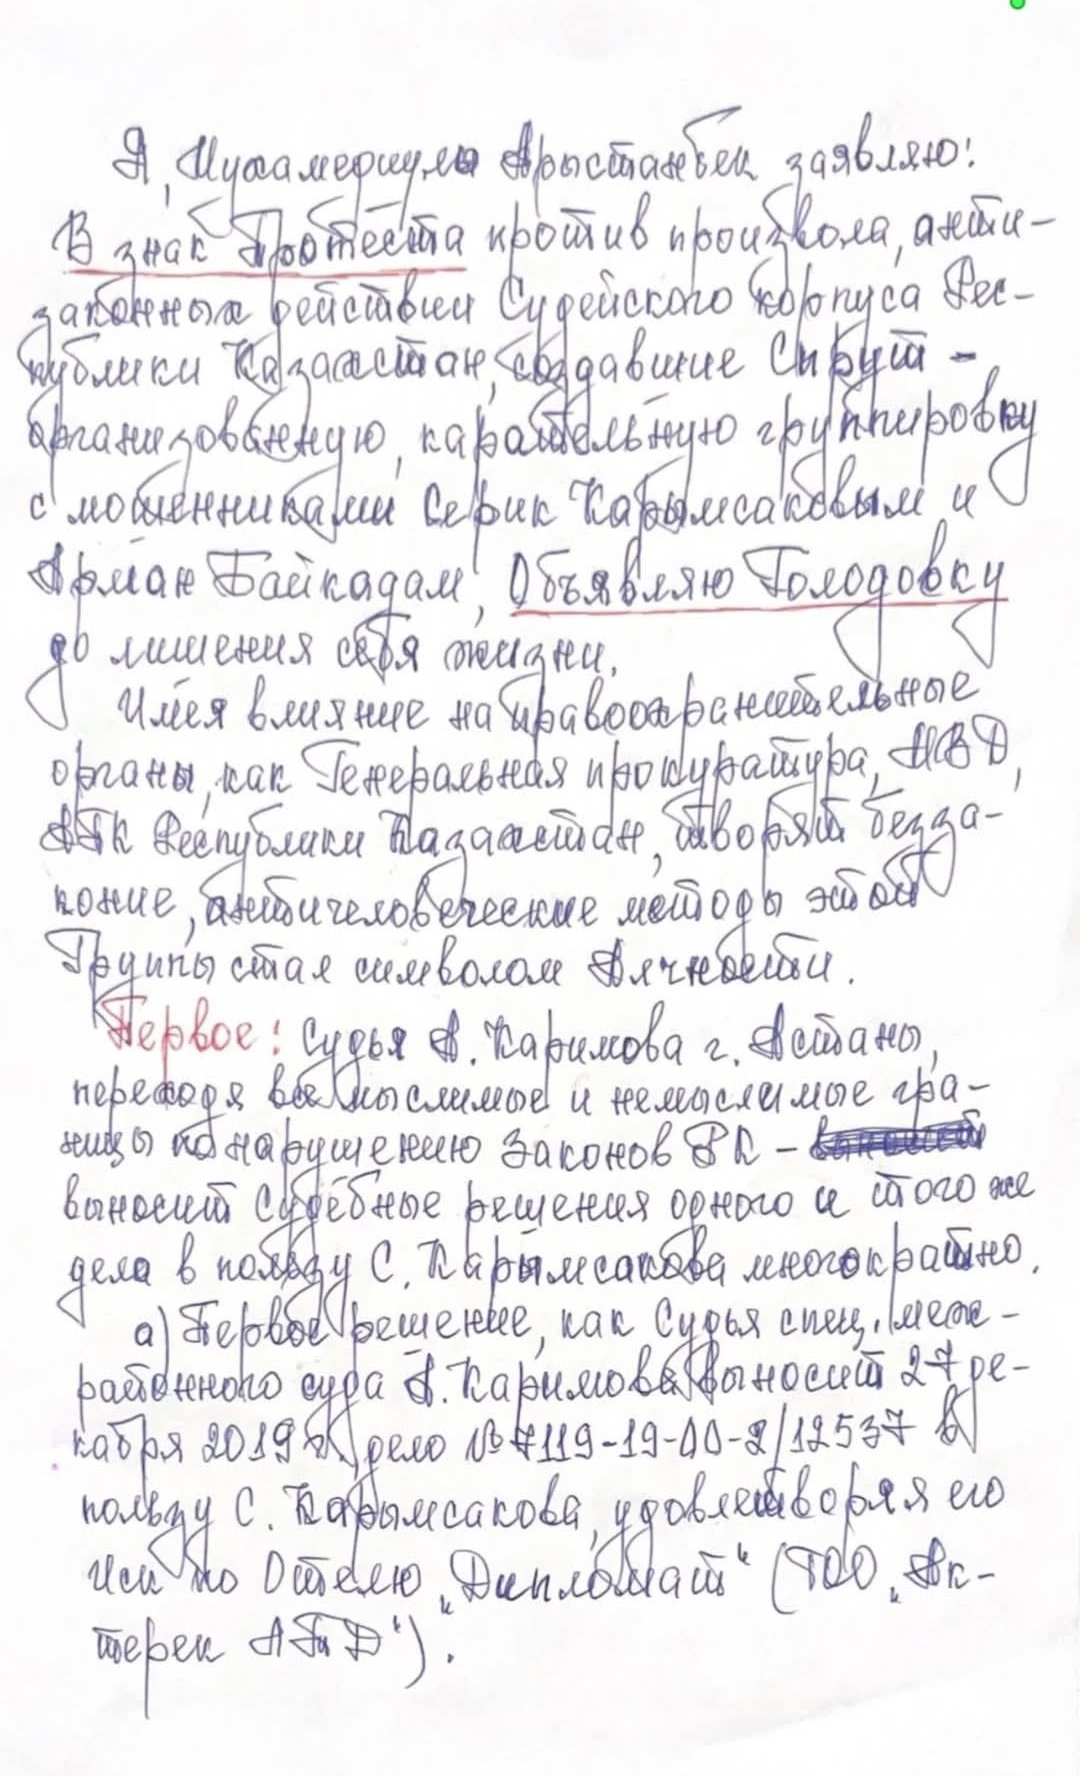 Я, Мухамедиулы Арыстанбек заявляю:
В знак Протеста против произвола, анти-
законных действии Судейского корпуса Рес-
публики Казахстан, создавшие Спрут -
организованную, карательную группировку
с мошенниками Серик Карымсаковым и
Арман Байкадам, Объявляю Голодовку
до лишения себя жизни.
Имея влияние на правоохранительные
органы, как Генеральная прокуратура, МВД,
АГК Республики Казахстан, творят безза-
коние, античеловеческие методы этой
Группы стал символом Алчности.
Первое: Судья А. Каримова г. Астаны,
переходя все мыслимые и немыслимые гра-
ницы по нарушению Законов РК -
выносит Судебные решения одного и того же
дела в пользу С. Карымсакова многократно.
а) Первое решение, как Судья спец. меж-
районного суда А. Каримова выносит 27 де-
кабря 2019 г. дело № 7119-19-00-2/12537 в
пользу С. Карымсакова, удовлетворяя его
Иск по Отелю „Дипломат“ (ТОО „Ак-
терек АПД“).